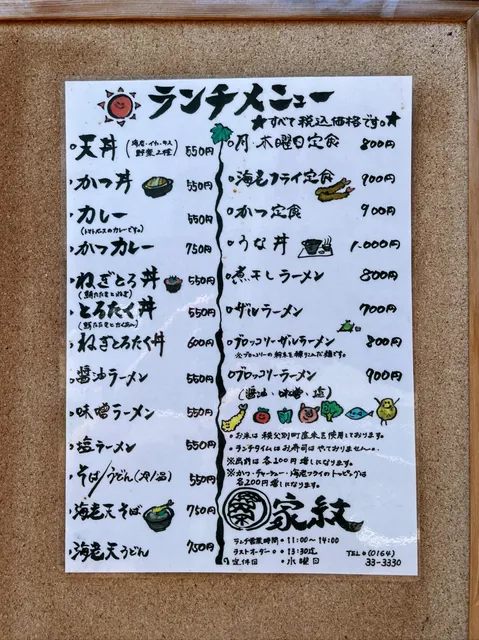 ランチメニュー
★すべて税込価格です。★
天丼(海老・イカ・キス 野菜二種) 550円
かつ丼 550円
カレー 550円
(トマトベースのカレーです。)
かつカレー 750円
ねぎとろ丼 550円
(鮪たたきとねぎ)
とろたく丼 550円
(鮪たたきとたくあん)
ねぎとろたく丼 600円
醤油ラーメン 550円
味噌ラーメン 550円
塩ラーメン 550円
そば/うどん 550円
海老天そば 750円
海老天うどん 750円
月・木曜日定食 800円
海老フライ定食 900円
かつ定食 900円
うな丼 1.000円
煮干しラーメン 800円
ザルラーメン 700円
ブロッコリーザルラーメン 800円
※ブロッコリーの粉末を練りこんだ麺です。
ブロッコリーラーメン 900円
(醤油・味噌・塩)
・お米は秩父別町産米を使用しております。
・ランチタイムはお寿司はやっておりません。
※出前は各200円増しになります。
※かつ・チャーシュー・海老フライのトッピングは
各200円増しになります。
家紋
ランチ営業時間・11:00~14:00
ラストオーダー・13:30迄
定休日・水曜日
TEL(0164)
33-3330